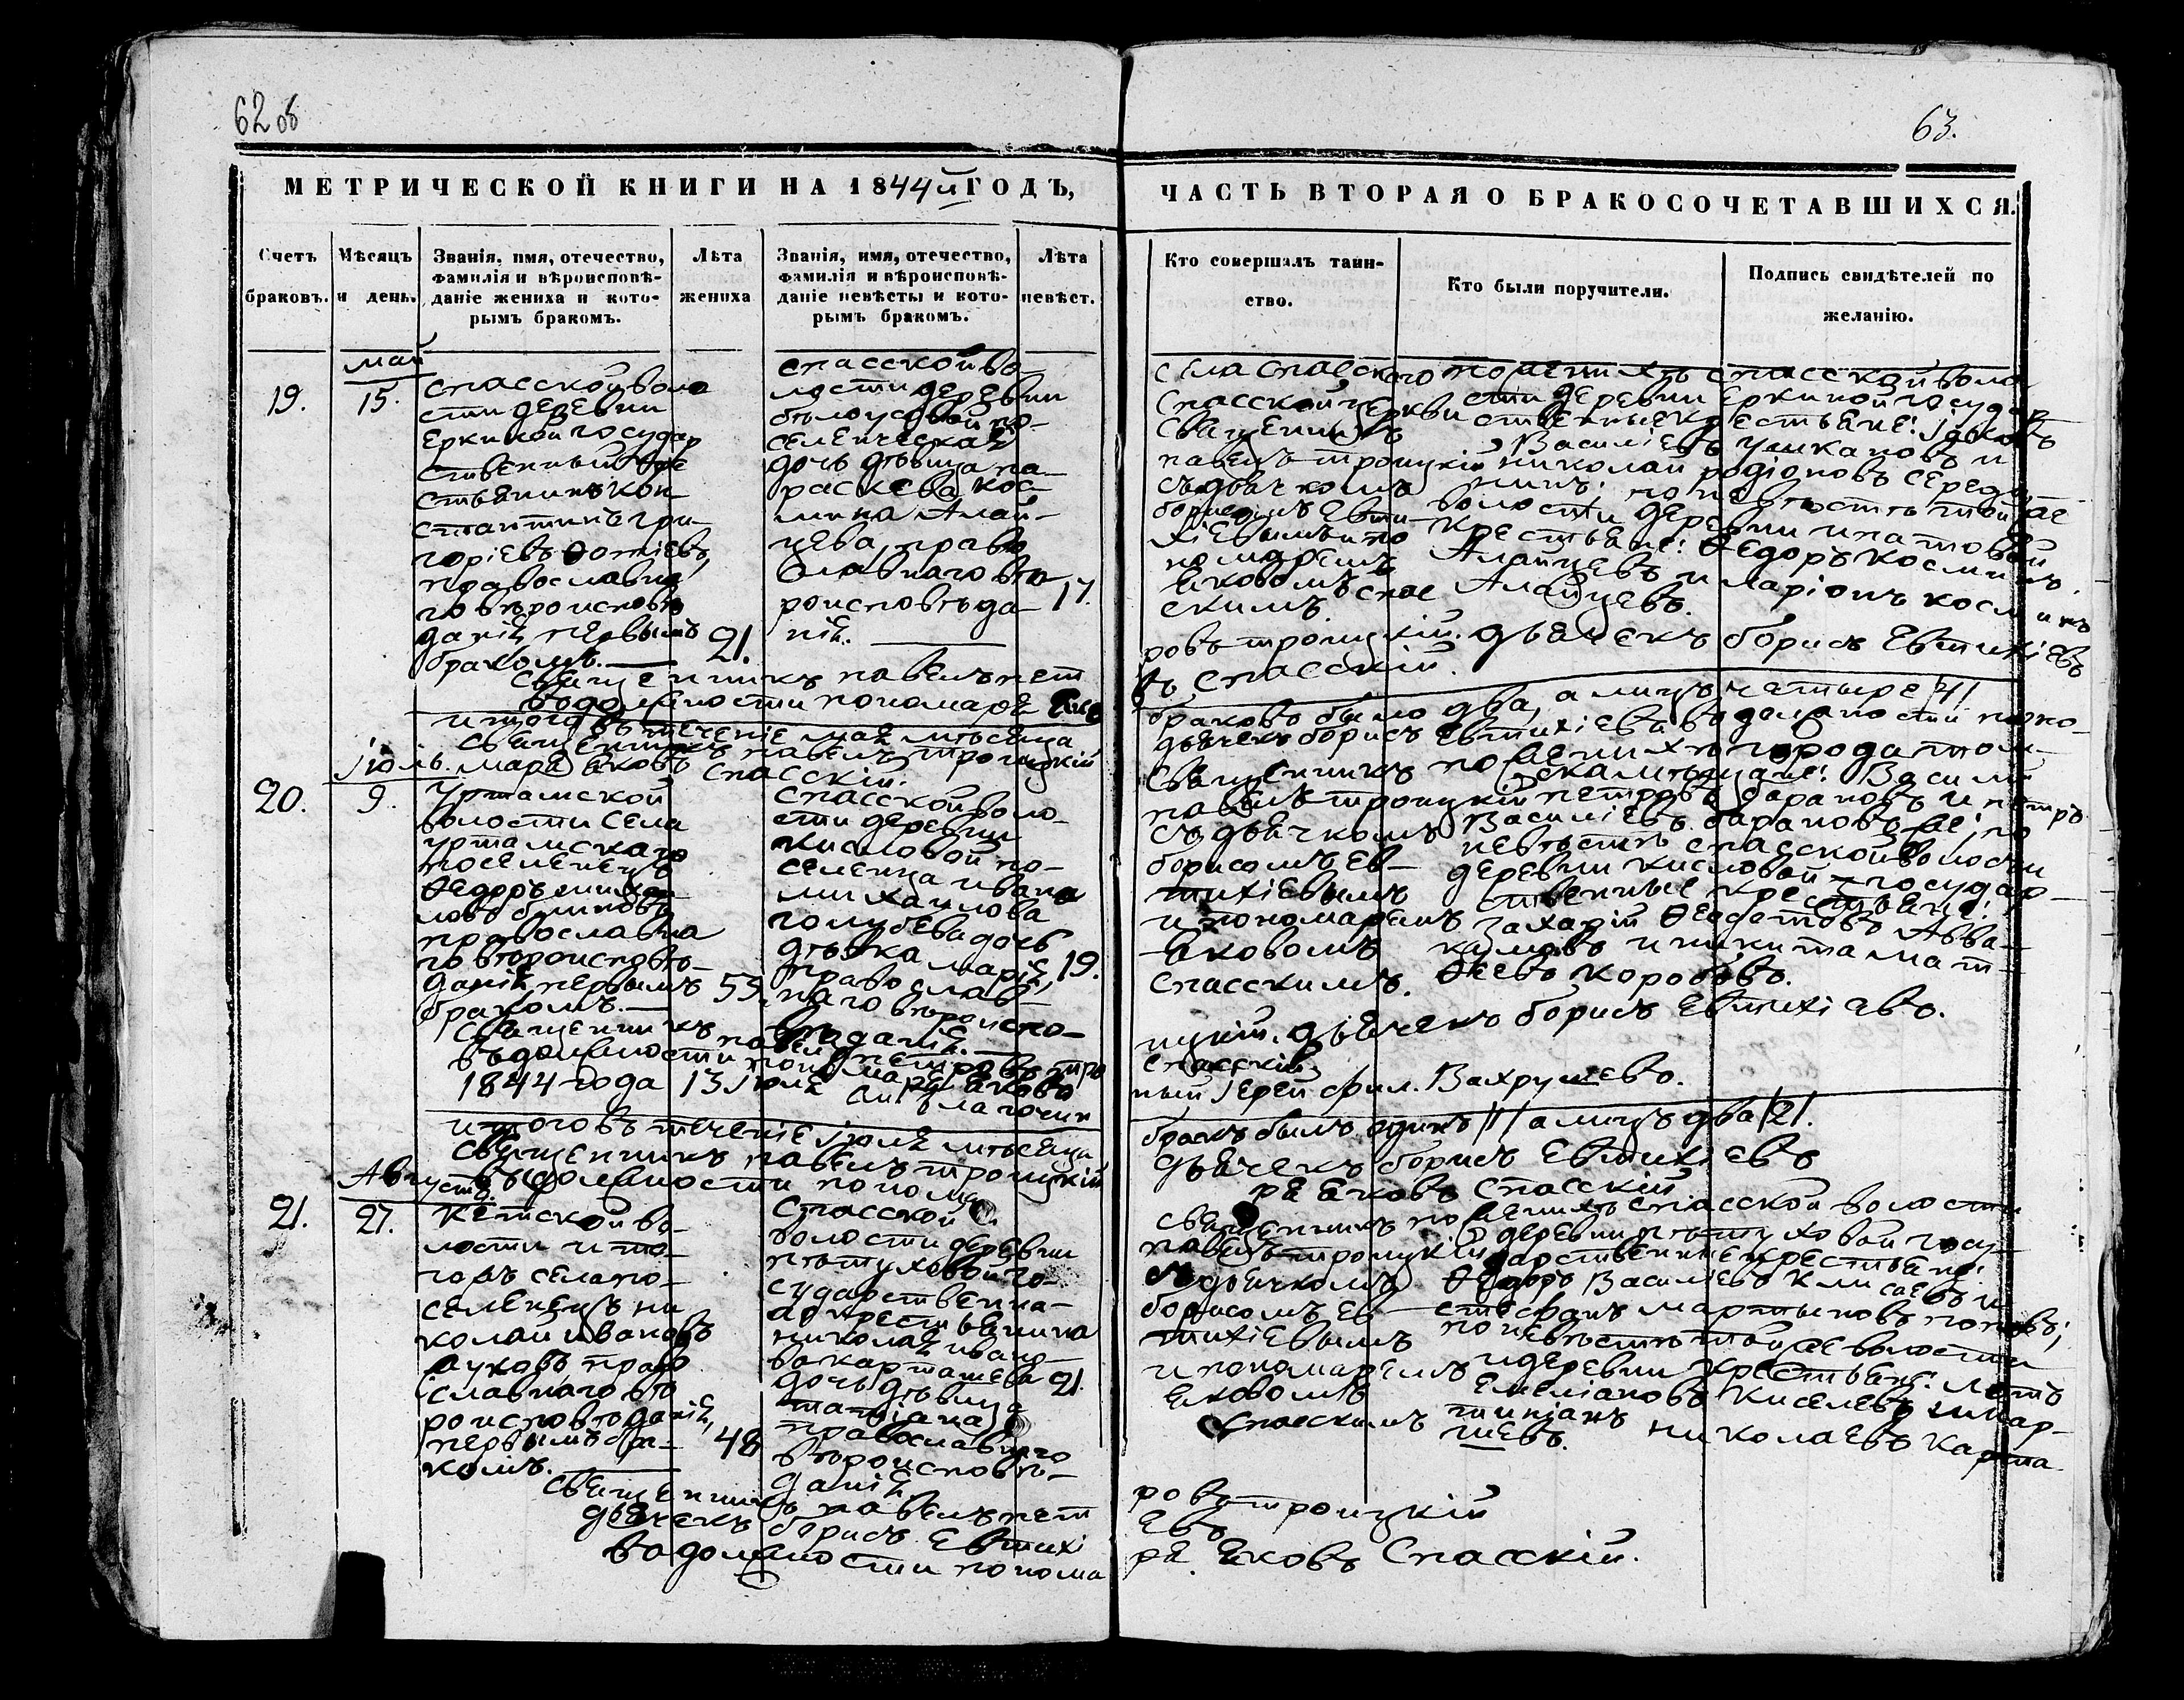 62 об
63.
МЕТРИЧЕСКОЙ КНИГИ НА 1844й ГОДЪ,
ЧАСТЬ ВТОРАЯ О БРАКОСОЧЕТАВШИХСЯ.
Счетъ браковъ.
Мѣсяцъ и день.
Званія, имя, отечество,
фамилія и вѣроисповѣ-
даніе жениха и кото-
рымъ бракомъ.
Лѣта
жениха
Званія, имя, отечество,
фамилія и вѣроисповѣ-
даніе невѣсты и кото-
рымъ бракомъ.
Лѣта
невѣст.
Кто совершалъ таин-
ство.
Кто были поручители.
Подпись свидѣтелей по
желанію.
19.
май
15.
Спасской воло
сти деревни
Еркиной государ
ственный кре
стьянинъ Кон-
стантинъ Гри-
горіевъ Ѳотіевъ,
православна
го вѣроисповѣ
данія, первымъ
бракомъ.
21.
Спасской во-
лости деревни
Бѣлоусовой по-
селенческая
дочь дѣвица Па-
раскева Кос-
мина Алай-
цева, право
славнаго вѣ
роисповѣда-
нія.
17.
Села Спасскаго
Спасской церкви
священникъ
Павелъ Троицкій
съ дьячкомъ
Борисомъ Евти-
хіевымъ и по
номаремъ
Яковомъ Спас
скимъ.
по женихѣ Спасской воло
сти деревни Еркиной государ
ственные крестьяне: Іаковъ
Василіевъ Ушкановъ и
Николай Родіоновъ Серед
нинъ; по невѣстѣ той же
волости деревни Ипатовой
крестьяне: Ѳедоръ Косминъ
Алайцевъ и Ларіонъ Косминъ
Алайцевъ.
Священникъ Павелъ Пет
ровъ Троицкій. Дьячекъ Борисъ Евтихіевъ
въ должности пономаря Яко
въ Спасскій.
итого въ теченіе мая мѣсяца
браковъ было два, а лицъ четыре /4/
Священникъ Павелъ Троицкій
дьячекъ Борисъ Евтихіевъ въ должности поно-
маря Яковъ Спасскій.
20.
Іюль.
9.
Уртамской
волости села
Уртамскаго
поселенецъ
Ѳедоръ Михай
ловъ Блиновъ
православна
го вѣроисповѣ-
данія, первымъ
бракомъ.
53.
Спасской воло-
сти деревни
Кисловой по-
селенца Ивана
Михаилова
Голубева дочь
дѣвка Марія,
православ-
наго вѣроиспо-
вѣданія.
19.
Священникъ
Павелъ Троицкій
съ дьячкомъ
Борисомъ Ев-
тихіевымъ
и пономаремъ
Яковомъ
Спасскимъ.
по женихѣ города Том-
ска мѣщане: Василій
Петровъ Барановъ и Петръ
Василіевъ Барановъ же; по
невѣстѣ Спасской волости
деревни Кисловой государ-
ственные крестьяне:
Захарій Ѳеодотовъ Авва-
кумовъ и Никита Мат-
ѳеевъ Коробовъ.
Священникъ Павелъ Петровъ Тро
ицкій. дьячекъ Борисъ Евтихіевъ.
въ должности пономаря Яковъ
Спасскій
1844 года 13 Іюля Благочин
ный Іерей Вахрушевъ.
итого въ теченіе іюля мѣсяца
бракъ былъ одинъ /1/ а лицъ два /2/.
Священникъ Павелъ Троицкій
дьячекъ Борисъ Евтихіевъ
въ должности понома
ря Яковъ Спасскій
21.
Августъ.
27.
Кетской во-
лости и то-
гожъ села по-
селенецъ Ни
колай Ивановъ
право
славнаго вѣ
роисповѣданія,
первымъ бра-
комъ.
48
Спасской
волости деревни
Пѣтуховой го-
сударственна-
го крестьянина
Николая Ивано-
ва Карташева
дочь дѣвица
Татіана
православнаго
вѣроисповѣ-
данія.
21
Священникъ
Павелъ Троицкій
съ дьячкомъ
Борисомъ Ев-
тихіевымъ
и пономаремъ
Яковомъ
Спасскимъ
по женихѣ Спасской волости
деревни Пѣтуховой госу-
дарственные крестьяне:
Ѳедоръ Василіевъ и
Стефанъ Мартыновъ Поповъ;
по невѣстѣ той же волости
и деревни крестьяне:
Емеліановъ Киселевъ и Мар-
тиніанъ Николаевъ Карта
шевъ.
Священникъ Павелъ Пет
ровъ Троицкій
дьячекъ Борисъ Евтихі
евъ
въ должности понома
ря Яковъ Спасскій.